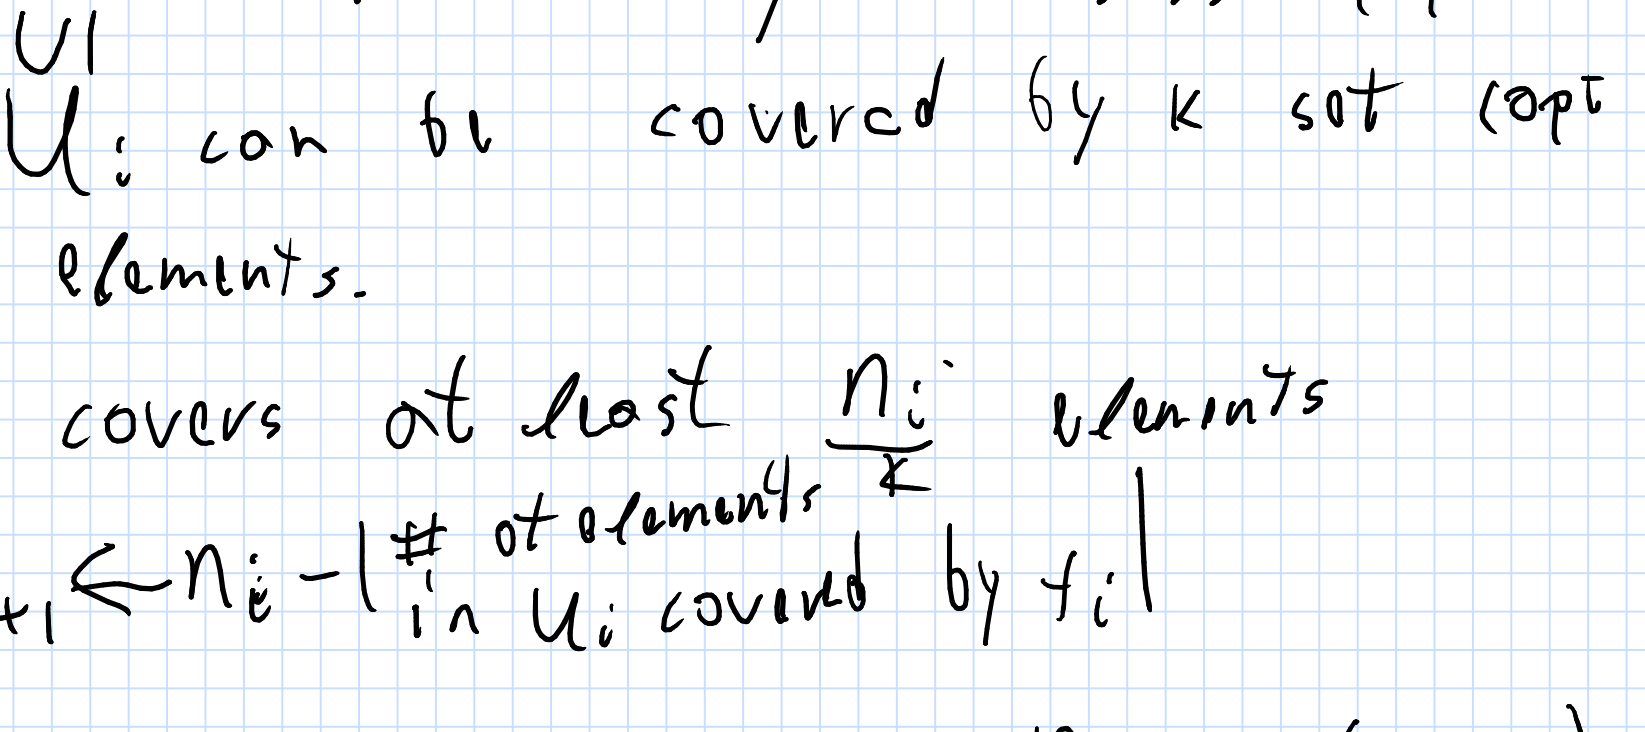 U1
Ui can be covered by k set (opt
elements.
covers at least ni/k elements
+1 ← ni - | # of elements in Ui covered by fi |